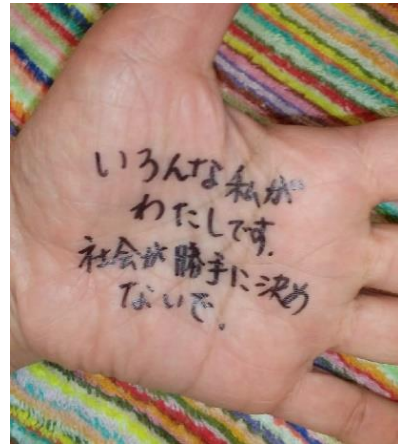 いろんな私が
わたしです.
社会が勝手に決め
ないで.